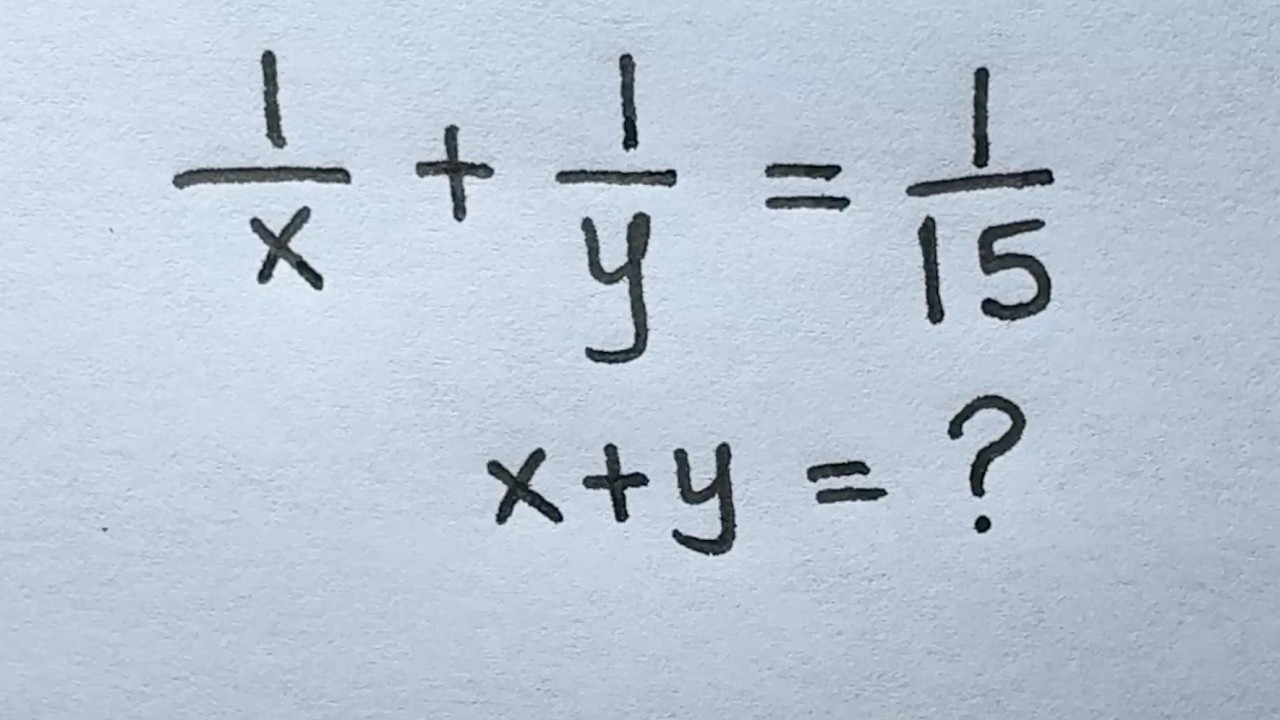 1/x + 1/y = 1/15
x+y = ?